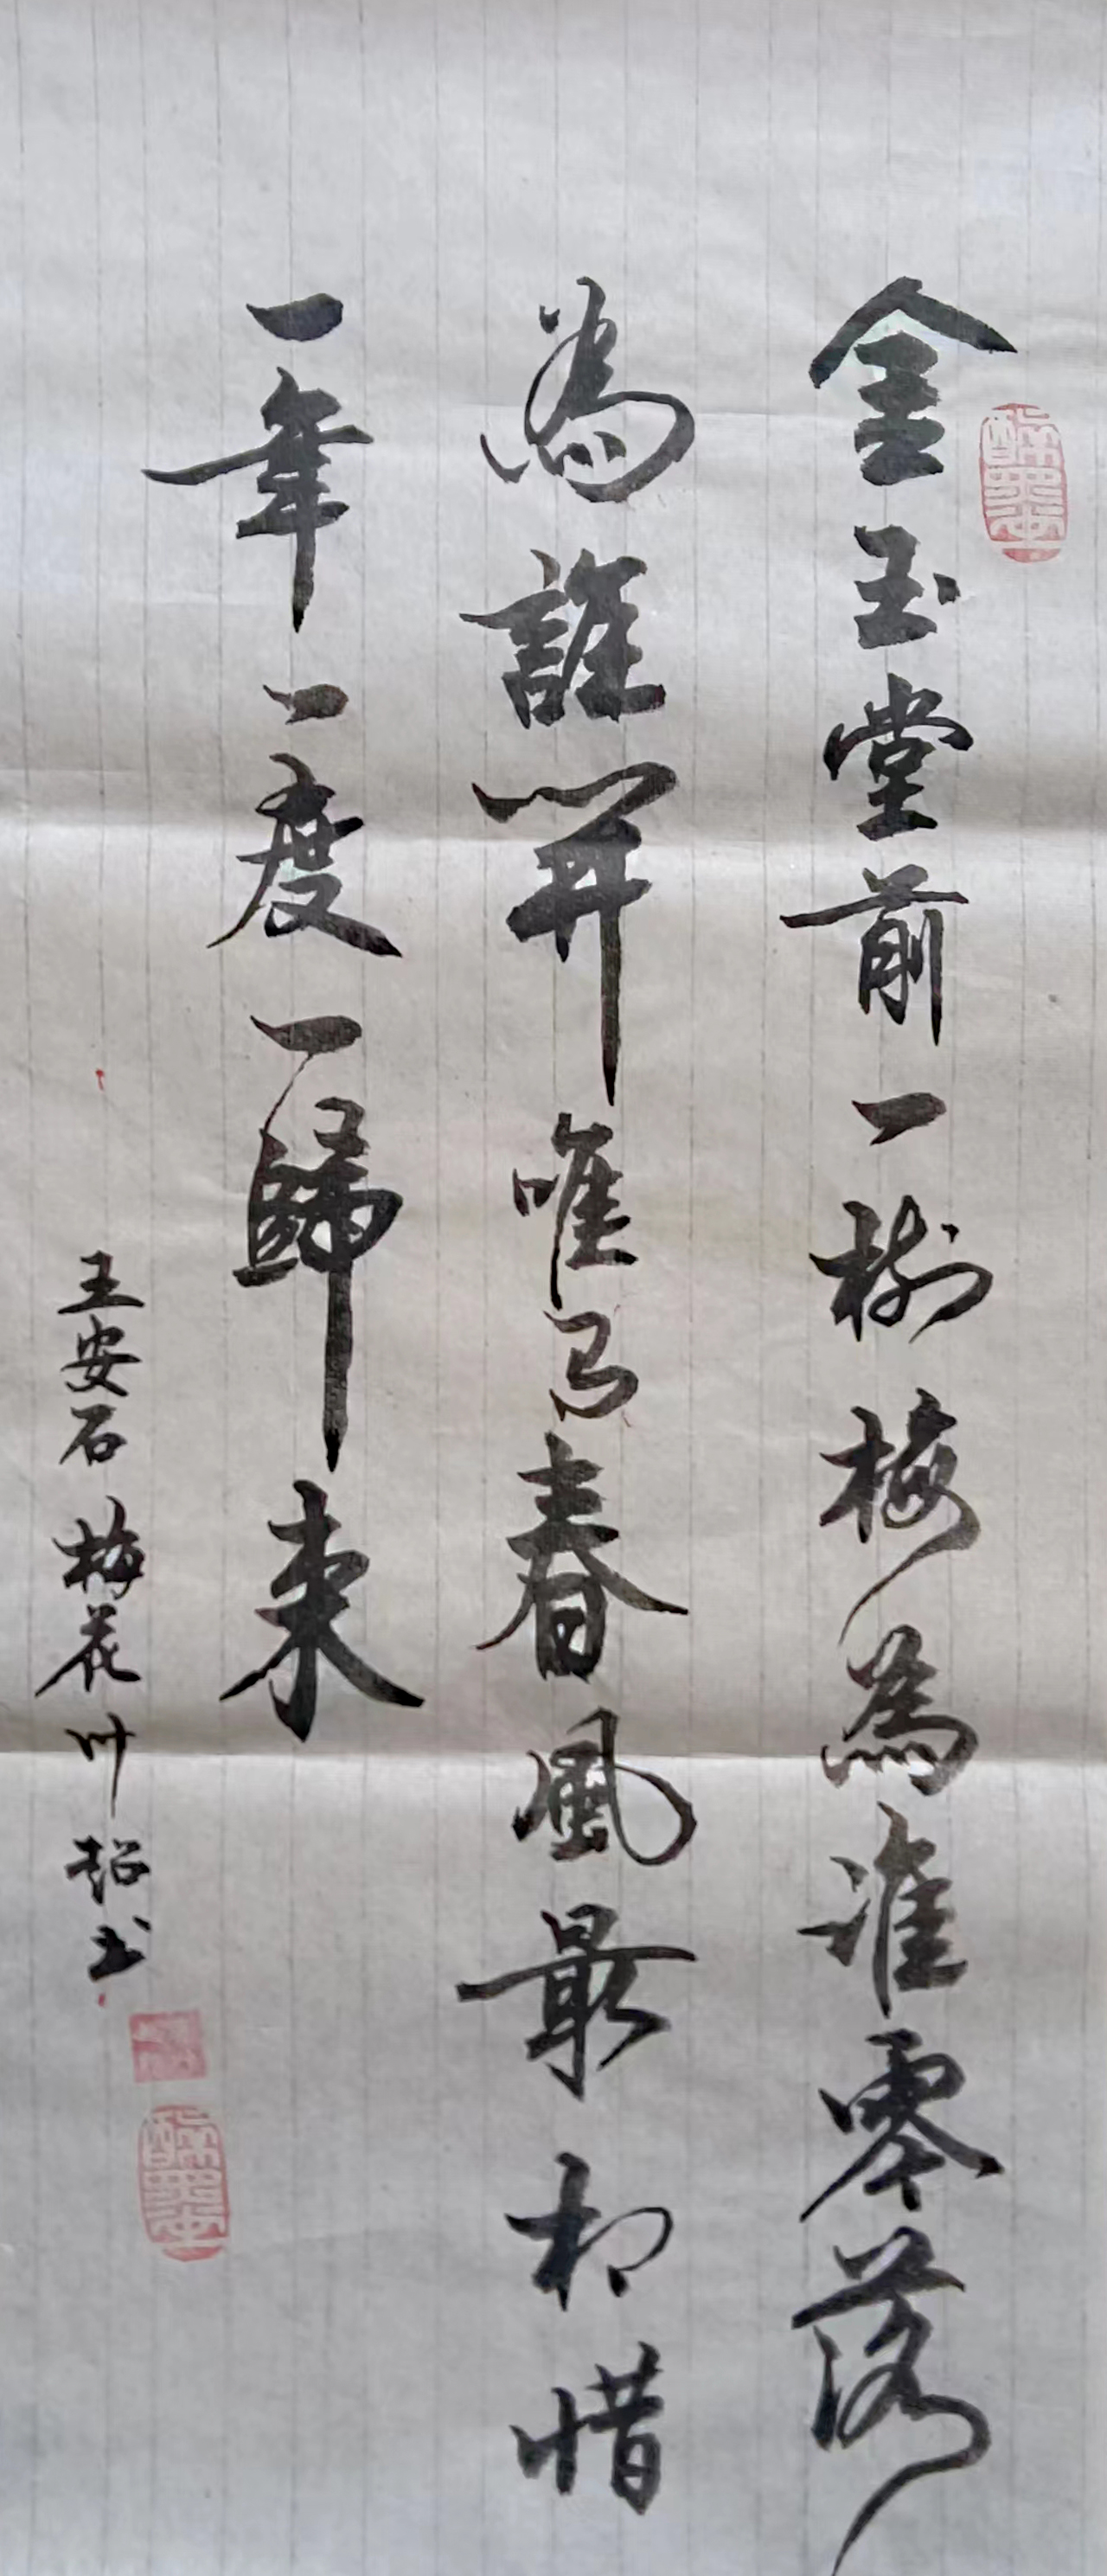 金玉堂前一树梅為谁零落
為誰開唯有春風最相惜
一年一度一歸来
王安石梅花叶超书